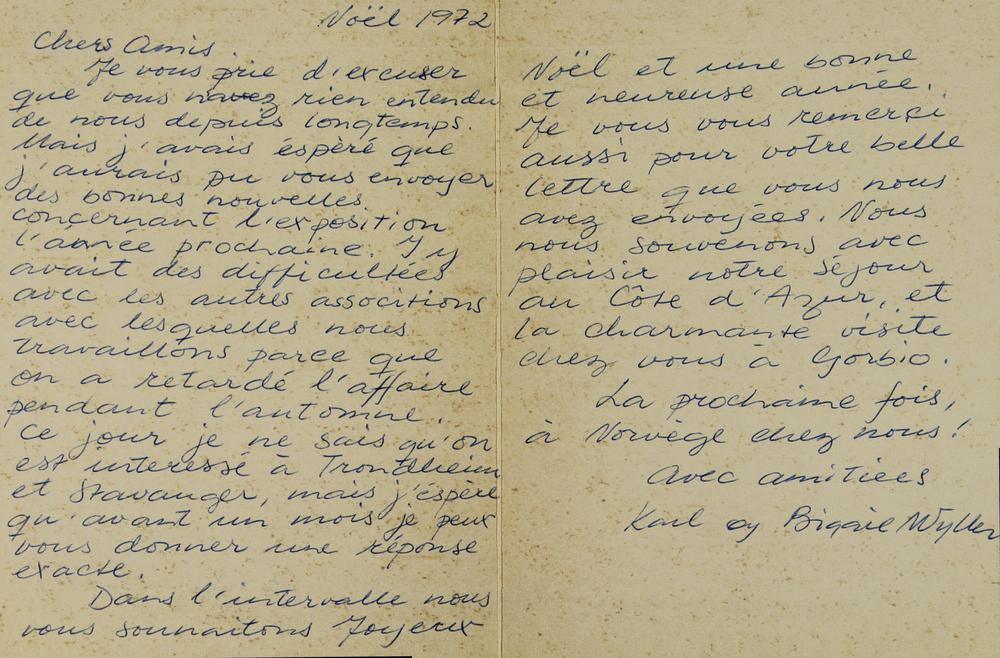 Noël 1972
Chers Amis.
Je vous prie d'excuser
que vous navez rien entendu
de nous depuis longtemps.
Mais j'avais éspèré que
j'aurais pu vous envoyer
des bonnes nouvelles.
concernant l'exposition
l'année prochaine. Y y
avait des difficultées
avec les autres associtions
avec lesquelles nous
travaillons parce que
on a retardé l'affaire
pendant l'automne.
Ce jour je ne sais qu'on
est interessé à Trondheim
et Stavanger, mais j'éspère
qu'avant un mois je peux
vous donner une réponse
exacte.
Dans l'intervalle nous
vous souhaitons Joyeux
Noël et une bonne
et heureuse année.
Je vous vous remerçi
aussi pour votre belle
lettre que vous nous
avez envoyées. Nous
nous souvenons avec
plaisir notre séjour
au Côte d'Azur, et
la charmante visite
chez vous à Gorbio.
La prochaine fois,
à Norvège chez nous!
Avec amitiées
Karl og Wyller